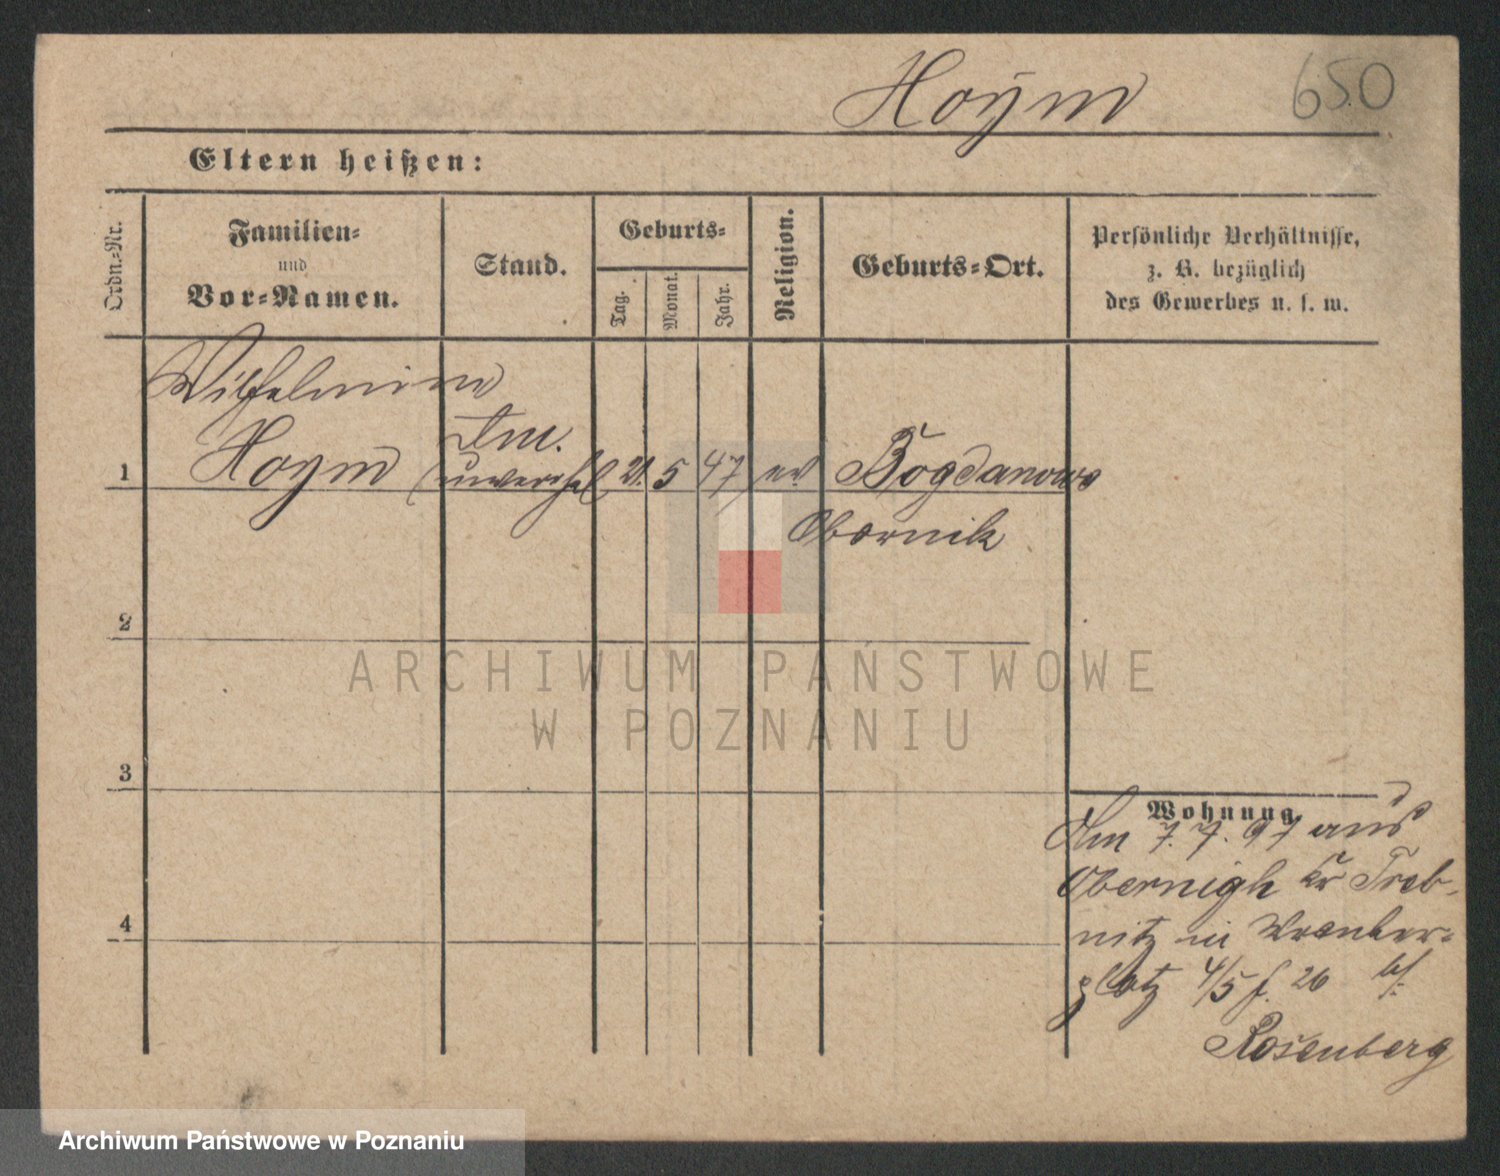 Hoÿm
650
Eltern heißen:
Ordn.-Nr.
Familien-
und
Vor-Namen.
Stand.
Geburts-
Tag.
Monat.
Jahr.
Religion.
Geburts-Ort.
Persönliche Verhältnisse,
z. B. bezüglich
des Gewerbes u. s. w.
Wilhelmine
Hoym
unverehel
1
21. 5 47 ev
Bogdanowo
Obornik
2
3
4
Wohnung
Am 7.7.97 aus
Obernigh Kr Treb-
nitz in
platz 4/5 f. 26 bei
Rosenberg
ARCHIWUM PAŃSTWOWE
W POZNANIU
Archiwum Państwowe w Poznaniu